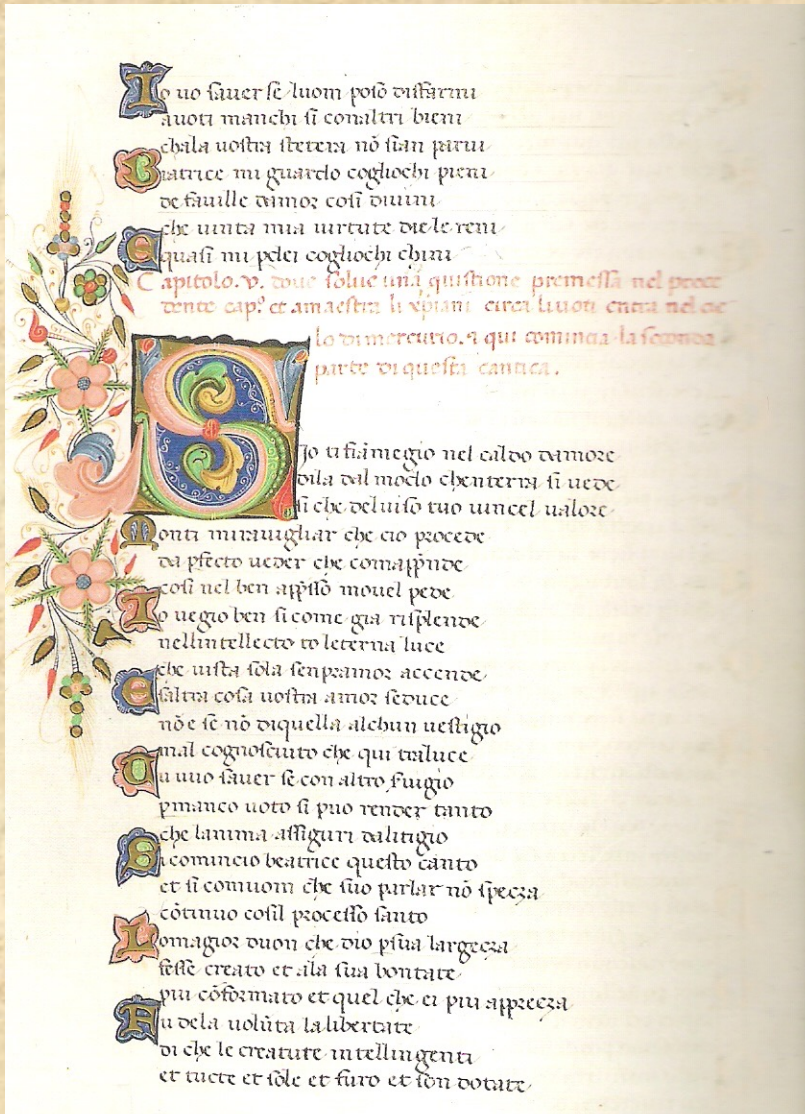 Io uo sauer se luom poso disfarui
auoti manchi si conaltri bieni
chala uostra stetera nō sian parui
Beatrice mi guardo cogliochi pieni
de fauille damor cosi diuini
che uinta mia uirtute die le reni
e quasi mi pdei cogliochi chini
Capitolo .v. doue solue una quistione premessa nel prece
dente cap.º et amaestra li xpiani circa li uoti entra nel cie
lo di mercurio. e qui comincia la seconda
parte di questa cantica.
SIo ti fiāmegio nel caldo damore
dila dal modo chenterra si uede
si che deluiso tuo uincel ualore
Non ti mirauigliar che cio procede
da pfecto ueder che comapp̄nde
cosi nel ben app̄sso mouel pede
Io uegio ben si come gia risplende
nellintellecto to leterna luce
che uista sola senpramor accende
e saltra cosa uostra amor seduce
nō e se nō diquella alchun uestigio
mal cognosciuto che qui traluce
Tu uuo sauer se con altro suigio
pmanco uoto si puo render tanto
che lanima assiguri dalitigio
Si comincio beatrice questo canto
et si comuom che suo parlar nō specza
cōtinuo cosil processo santo
Lo magior duon che dio psua largecza
fesse creato et ala sua bontate
piu cōformato et quel che ei piu apprecza
Fu dela uolūta la libertate
di che le creature intellingenti
et tucte et sole et furo et son dotate